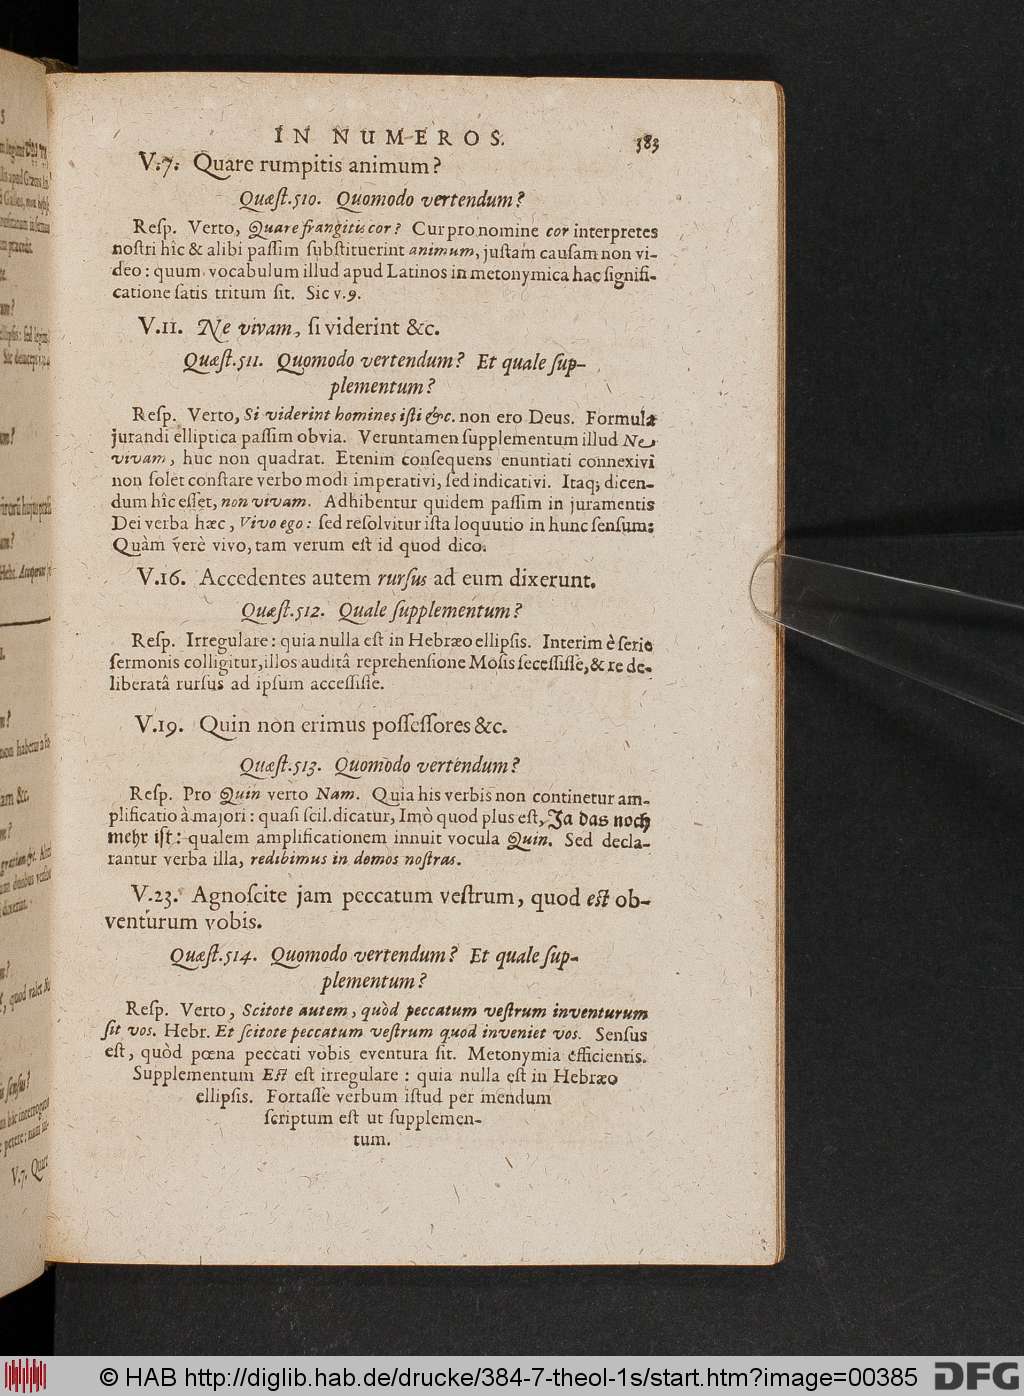 IN NUMEROS.
383
V. 7. Quare rumpitis animum?
Quæſt. 510. Quomodo vertendum?
Reſp. Verto, Quare frangitis cor? Cur pro nomine cor interpretes
noſtri hîc & alibi paſſim ſubſtituerint animum, juſtam cauſam non vi-
deo: quum vocabulum illud apud Latinos in metonymica hac ſignifi-
catione ſatis tritum ſit. Sic v. 9.
V. 11. Ne vivam, ſi viderint &c.
Quæſt. 511. Quomodo vertendum? Et quale ſup-
plementum?
Reſp. Verto, Si viderint homines iſti &c. non ero Deus. Formula
jurandi elliptica paſſim obvia. Veruntamen ſupplementum illud Ne
vivam, huc non quadrat. Etenim conſequens enuntiati connexivi
non ſolet conſtare verbo modi imperativi, ſed indicativi. Itaq; dicen-
dum hîc eſſet, non vivam. Adhibentur quidem paſſim in juramentis
Dei verba hæc, Vivo ego: ſed reſolvitur iſta loquutio in hunc ſenſum:
Quàm verè vivo, tam verum eſt id quod dico.
V. 16. Accedentes autem rurſus ad eum dixerunt.
Quæſt. 512. Quale ſupplementum?
Reſp. Irregulare: quia nulla eſt in Hebræo ellipſis. Interim è ſerie
ſermonis colligitur, illos auditâ reprehenſione Moſis ſeceſſiſſe, & re de-
liberatâ rurſus ad ipſum acceſſiſſe.
V. 19. Quin non erimus poſſeſſores &c.
Quæſt. 513. Quomodo vertendum?
Reſp. Pro Quin verto Nam. Quia his verbis non continetur am-
plificatio à majori: quaſi ſcil. dicatur, Imò quod plus eſt, Ja das noch
mehr iſt: qualem amplificationem innuit vocula Quin. Sed decla-
rantur verba illa, redibimus in domos noſtras.
V. 23. Agnoſcite jam peccatum veſtrum, quod eſt ob-
venturum vobis.
Quæſt. 514. Quomodo vertendum? Et quale ſup-
plementum?
Reſp. Verto, Scitote autem, quòd peccatum veſtrum inventurum
ſit vos. Hebr. Et ſcitote peccatum veſtrum quod inveniet vos. Senſus
eſt, quòd pœna peccati vobis eventura ſit. Metonymia efficientis.
Supplementum Eſt eſt irregulare: quia nulla eſt in Hebræo
ellipſis. Fortaſſe verbum iſtud per mendum
ſcriptum eſt ut ſupplemen-
tum.
© HAB http://diglib.hab.de/drucke/384-7-theol-1s/start.htm?image=00385
DFG